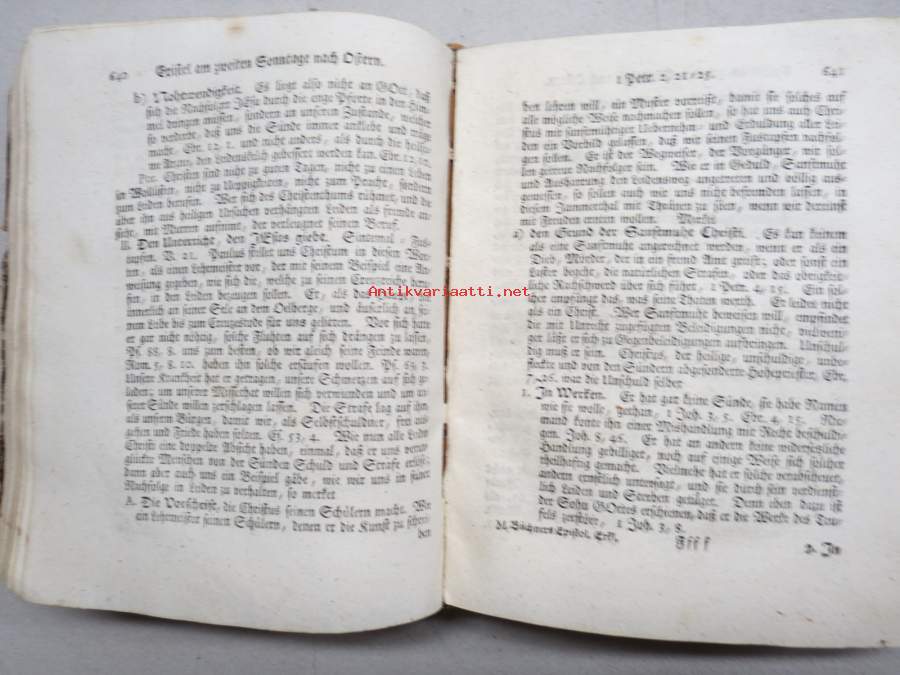 640 Epistel am zweiten Sonntage nach Ostern.
b) Nohtwendigkeit. Es liegt also nicht an GOtt, daß
sich die Nachfolger JEsu durch die enge Pforte in den Him-
mel dringen müssen, sondern an unserem Zustande, welcher
so verderbt, daß uns die Sünde immer anklebt und träge
macht, Ebr. 12, 1. und nicht anders, als durch die heilsa-
me Arznei, den Leidenskelch gebessert werden kan, Ebr. 12, 10.
Por. Christen sind nicht zu guten Tagen, nicht zu einem Leben
in Wollüsten, nicht zu Ueppigkeiten, nicht zum Pracht, sondern
zum Leiden berufen. Wer sich des Christenthums rühmet, und die
aber ihn aus heiligen Ursachen verhängten Leiden als fremde an-
sieht, mit Murren aufnimt, der verleugnet seinen Beruf.
II. Den Unterricht, den JEsus giebt. Sintemal, Fus-
tapfen. V. 21. Paulus stellet uns Christum in diesen Wor-
ten, als einen Lehrmeister vor, der mit seinem Beispiel eine An-
weisung gegeben, wie sich die, welche zu seiner Creuz
sen, in den Leiden bezeugen sollen. Er, als das
innerlich an seiner Sele an dem Oelberge, und äuserlich an sei-
nem Leibe bis zum Creuzestode für uns gelitten. Vor sich hatte
er gar nicht nöhtig, solche Fluhten auf sich drängen zu lassen,
Ps. 88, 8. uns zum besten, ob wir gleich seine Feinde warn,
Rom. 5, 8. 10. haben ihn solche ersäufen wollen. Ps. 69, 3.
Unsere Krankheit hat er getragen, unsere Schmerzen auf sich ge-
laden; um unserer Missethat willen sich verwunden und um un-
serer Sünde willen zerschlagen lassen. Die Strafe lag auf ihm,
als unserm Bürgen, damit wir, als Selbstschuldner, frei aus-
gehen und Friede haben solten. Es. 53, 4. Wie nun alle Leiden
Christi eine doppelte Absicht haben, einmal, daß er uns verun-
glückte Menschen von der Sünden Schuld und Strafe erlöse;
dann aber auch uns ein Beispiel gäbe, wie wir uns in seiner
Nachfolge in Leiden zu verhalten, so merket
A. Die Vorschrift, die Christus seinen Schülern macht. Wie
ein Lehrmeister seinen Schülern, denen er die Kunst zu schrei-
ben
1 Petr. 2, 21-25. 641
ben lehren will, ein Muster vorreisst, damit sie solches auf
alle mögliche Weise nachmachen sollen, so hat uns auch Chri-
stus mit sanftmühtiger Uebernehm- und Erduldung aller Lei-
den ein Vorbild gelassen, daß wir seinen Fustapfen nachfol-
gen sollen. Er ist der Wegweiser, der Vorgänger, wir sol-
len getreue Nachfolger sein. Wie er in Geduld, Sanftmuht
und Ausharrung den Leidensweg angetreten und völlig aus-
gemessen, so sollen auch wir uns nicht befremden lassen, in
diesem Jammerthal mit Thränen zu säen, wenn wir dereinst
mit Freuden ernten wollen. Merkts
a) den Grund der Sanftmuht Christi. Es kan keinem
als eine Sanftmuht angerechnet werden, wenn er als ein
Dieb, Mörder, der in ein fremd Amt greift; oder sonst ein
Laster begeht, die natürlichen Strafen, oder das obrigkeit-
liche Rachschwerd über sich führt, 1 Petr. 4, 15. Ein sol-
cher empfängt das, was seine Thaten werth. Er leidet nicht
als ein Christ. Wer Sanftmuht beweisen will, empfindet
die mit Unrecht zugefügten Beleidigungen nicht, vielweni-
ger lässt er sich zu Gegenbeleidigungen aufbringen. Unschul-
dig muß er sein. Christus, der heilige, unschuldige, unbe-
fleckte und von den Sündern abgesonderte Hohepriester, Ebr.
7, 26. war die Unschuld selber
1. In Werken. Er hat gar keine Sünde, sie habe Namen
wie sie wolle, gethan, 1 Joh. 3, 5. Ebr. 4, 15. Nie-
mand konte ihn einer Mishandlung mit Recht beschuldi-
gen. Joh. 8, 46. Er hat an andern keine widersetzliche
Handlung gebilliget, noch auf einige Weise sich solcher
theilhaftig gemacht. Vielmehr hat er solche verabscheuet,
andern ernstlich untersagt, und sie durch sein verdienst-
lich Leiden und Sterben getilget. Denn eben dazu ist
der Sohn GOttes erschienen, daß er die Werke des Teu-
fels zerstöre, 1 Joh. 3, 8.
M. Büchners Epistel. Erkl. Ffff 2. In
Antikvariaatti.net